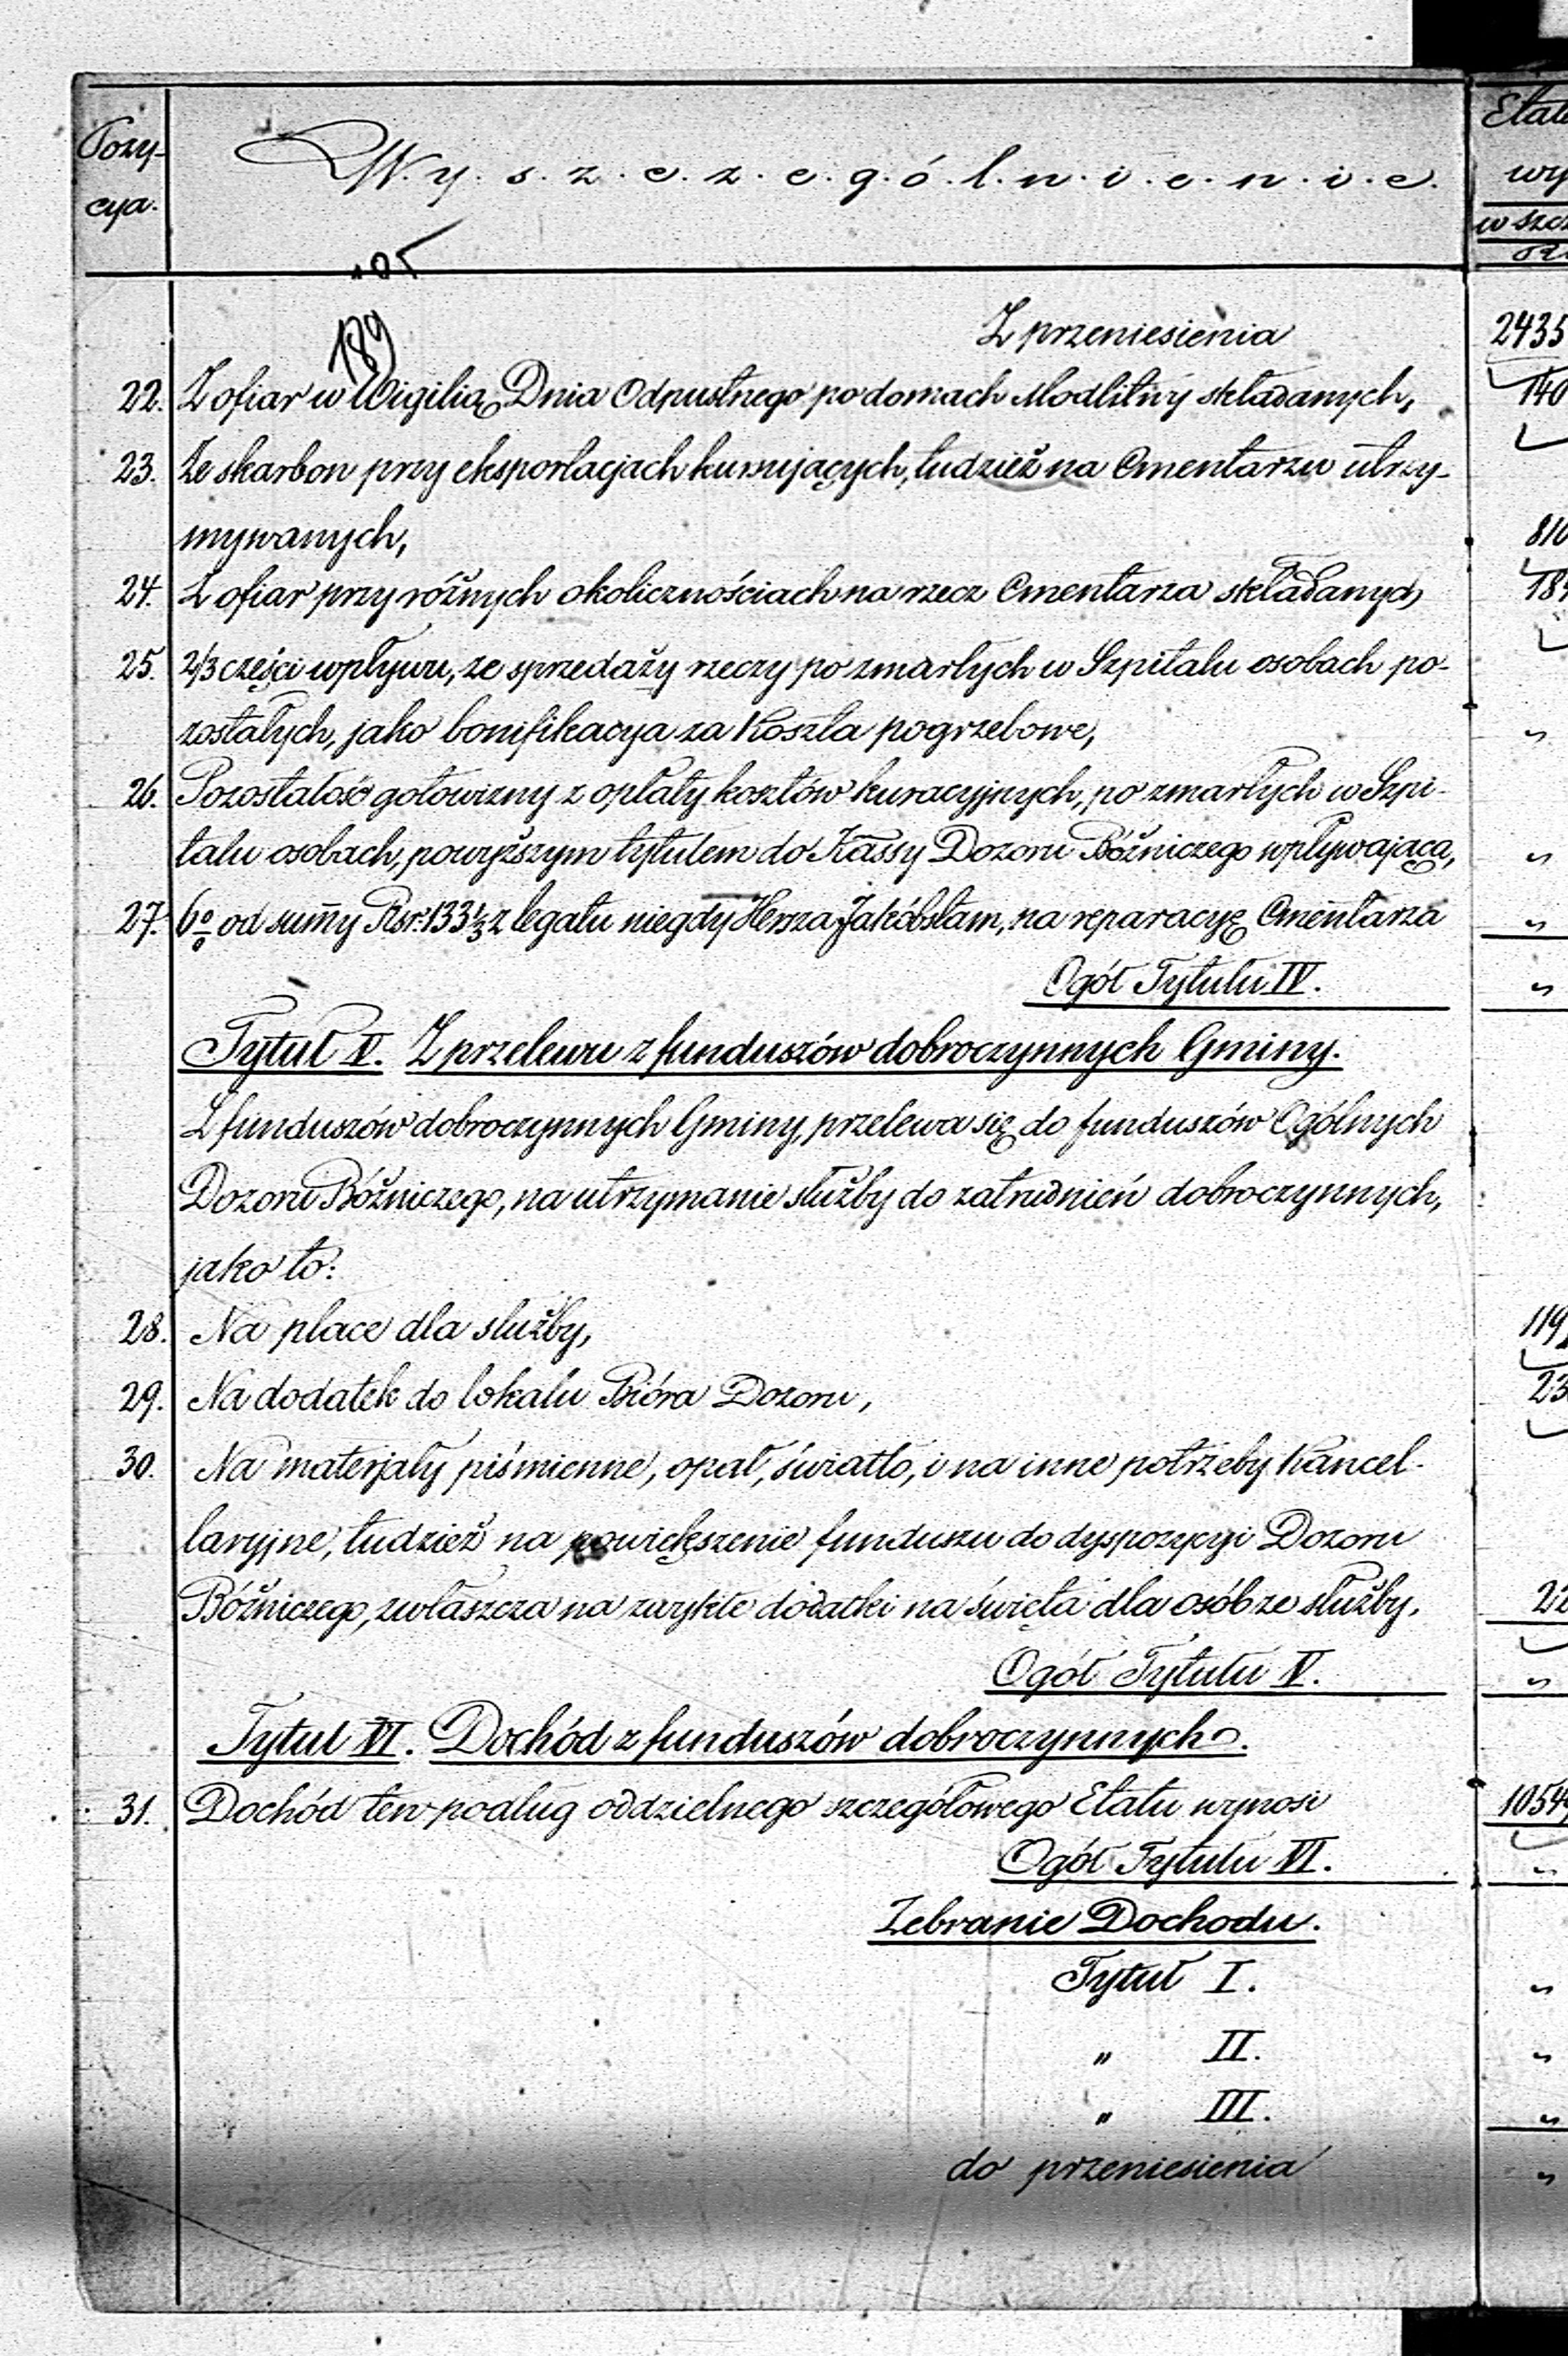 Pozy- W.y.s.z.c.z.e.g.ó.l.n.i.e.n.i.e. Etat
cya. wy
w szcz
105
189
Z przeniesienia 2435
22. Z ofiar w Wigilią Dnia Odpustnego po domach Modlitwy składanych, 140
23. Ze skarbon przy eksportacjach kursujących, tudzież na Cmentarzu utrzy-
mywanych, 810
24. Z ofiar przy różnych okolicznościach na rzecz Cmentarza składanych 184
25. 2/3 części wpływu, ze sprzedaży rzeczy po zmarłych w Szpitalu osobach po-
zostałych, jako bonifikacya za Koszta pogrzebowe, "
26. Pozostałość gotowizny z opłaty kosztów kuracyjnych, po zmarłych w Szpi-
talu osobach, powyższym tytułem do Kassy Dozoru Bóżniczego wpływająca, "
27. 6% od summy Rsr. 133 1/3 z legatu niegdy Hersza Jakóbstam, na reparacyę Cmentarza "
Ogół Tytułu IV. "
Tytuł V. Z przelewu z funduszów dobroczynnych Gminy.
Z funduszów dobroczynnych Gminy, przelewa się do funduszów Ogólnych
Dozoru Bóżniczego, na utrzymanie służby do zatrudnień dobroczynnych,
jako to:
28. Na place dla służby, 119
29. Na dodatek do lokalu Bióra Dozoru, 23
30. Na materjały piśmienne, opał, światło, i na inne potrzeby Kancel-
laryjne, tudzież na powiększenie funduszu do dyspozycyi Dozoru
Bóżniczego, zwłaszcza na zwykłe dodatki na święta dla osób ze służby. 22
Ogół Tytułu V. "
Tytuł VI. Dochód z funduszów dobroczynnych.
31. Dochód ten podług oddzielnego szczegółowego Etatu wynosi 1054
Ogół Tytułu VI. "
Zebranie Dochodu.
Tytuł I. "
" II. "
" III. "
do przeniesienia "